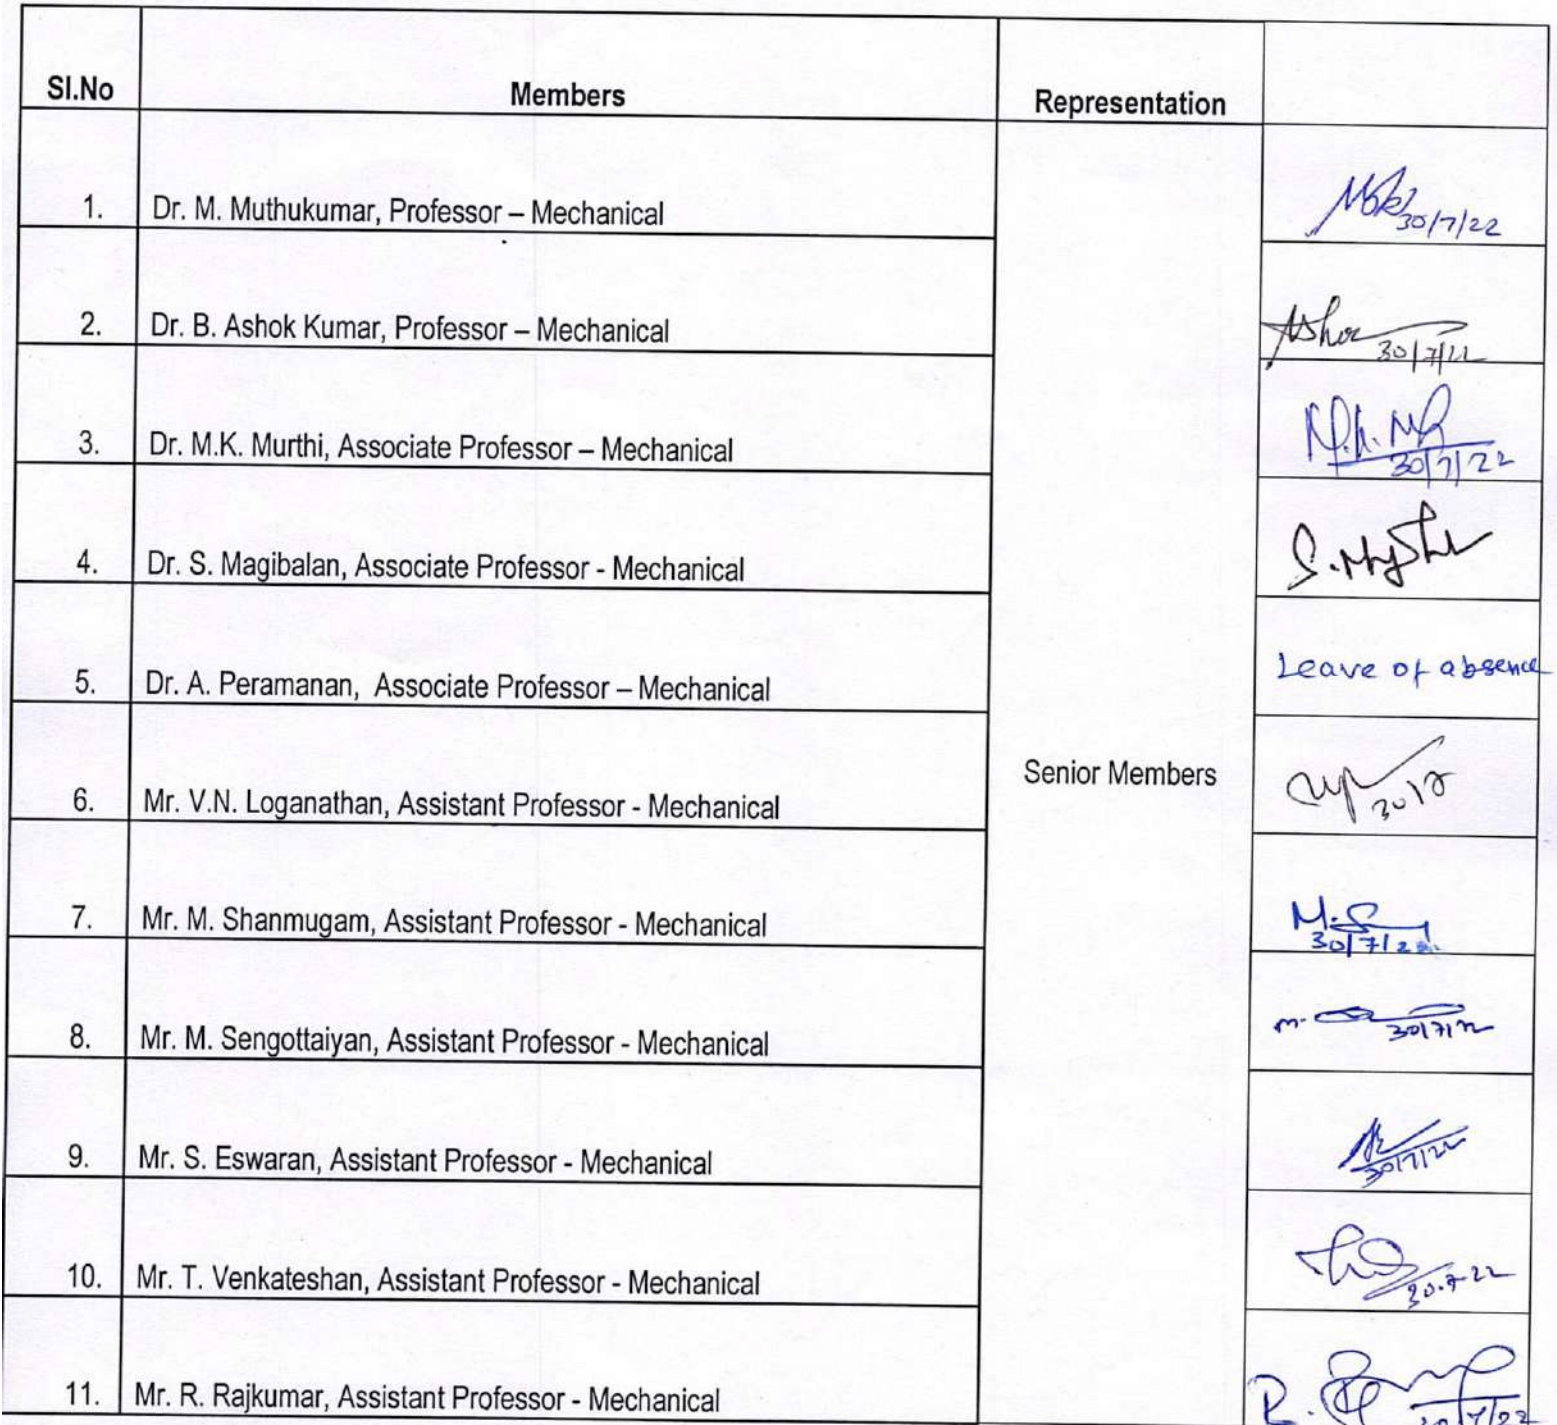 Sl.No Members Representation
1. Dr. M. Muthukumar, Professor – Mechanical 30/7/22
2. Dr. B. Ashok Kumar, Professor – Mechanical Ashok 30/7/22
3. Dr. M.K. Murthi, Associate Professor – Mechanical 30/7/22
4. Dr. S. Magibalan, Associate Professor - Mechanical
5. Dr. A. Peramanan, Associate Professor – Mechanical Leave of absence
Senior Members
6. Mr. V.N. Loganathan, Assistant Professor - Mechanical 30/7
7. Mr. M. Shanmugam, Assistant Professor - Mechanical 30/7/22
8. Mr. M. Sengottaiyan, Assistant Professor - Mechanical 30/7/22
9. Mr. S. Eswaran, Assistant Professor - Mechanical 30/7/22
10. Mr. T. Venkateshan, Assistant Professor - Mechanical 30.7.22
11. Mr. R. Rajkumar, Assistant Professor - Mechanical